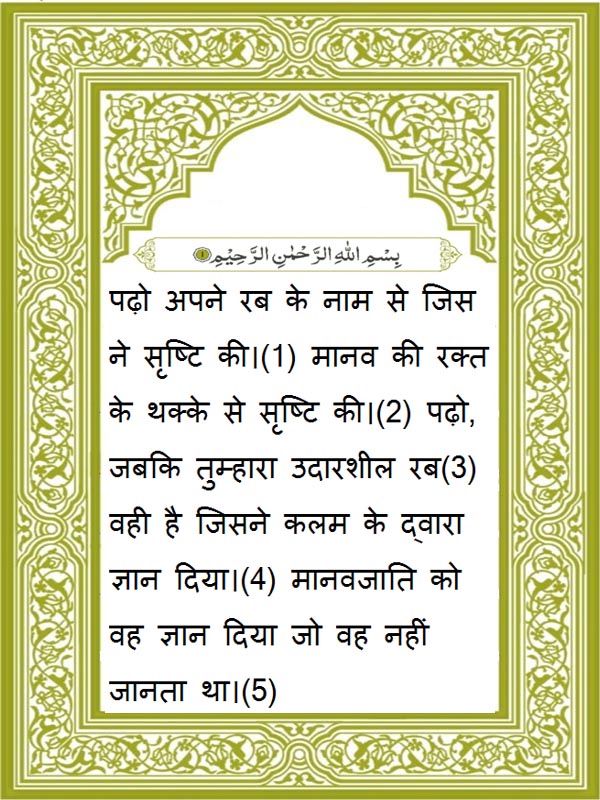 بِسْمِ اللهِ الرَّحْمٰنِ الرَّحِيْمِ ۝١
पढ़ो अपने रब के नाम से जिस
ने सृष्टि की।(1) मानव की रक्त
के थक्के से सृष्टि की।(2) पढ़ो,
जबकि तुम्हारा उदारशील रब(3)
वही है जिसने कलम के द्वारा
ज्ञान दिया।(4) मानवजाति को
वह ज्ञान दिया जो वह नहीं
जानता था।(5)